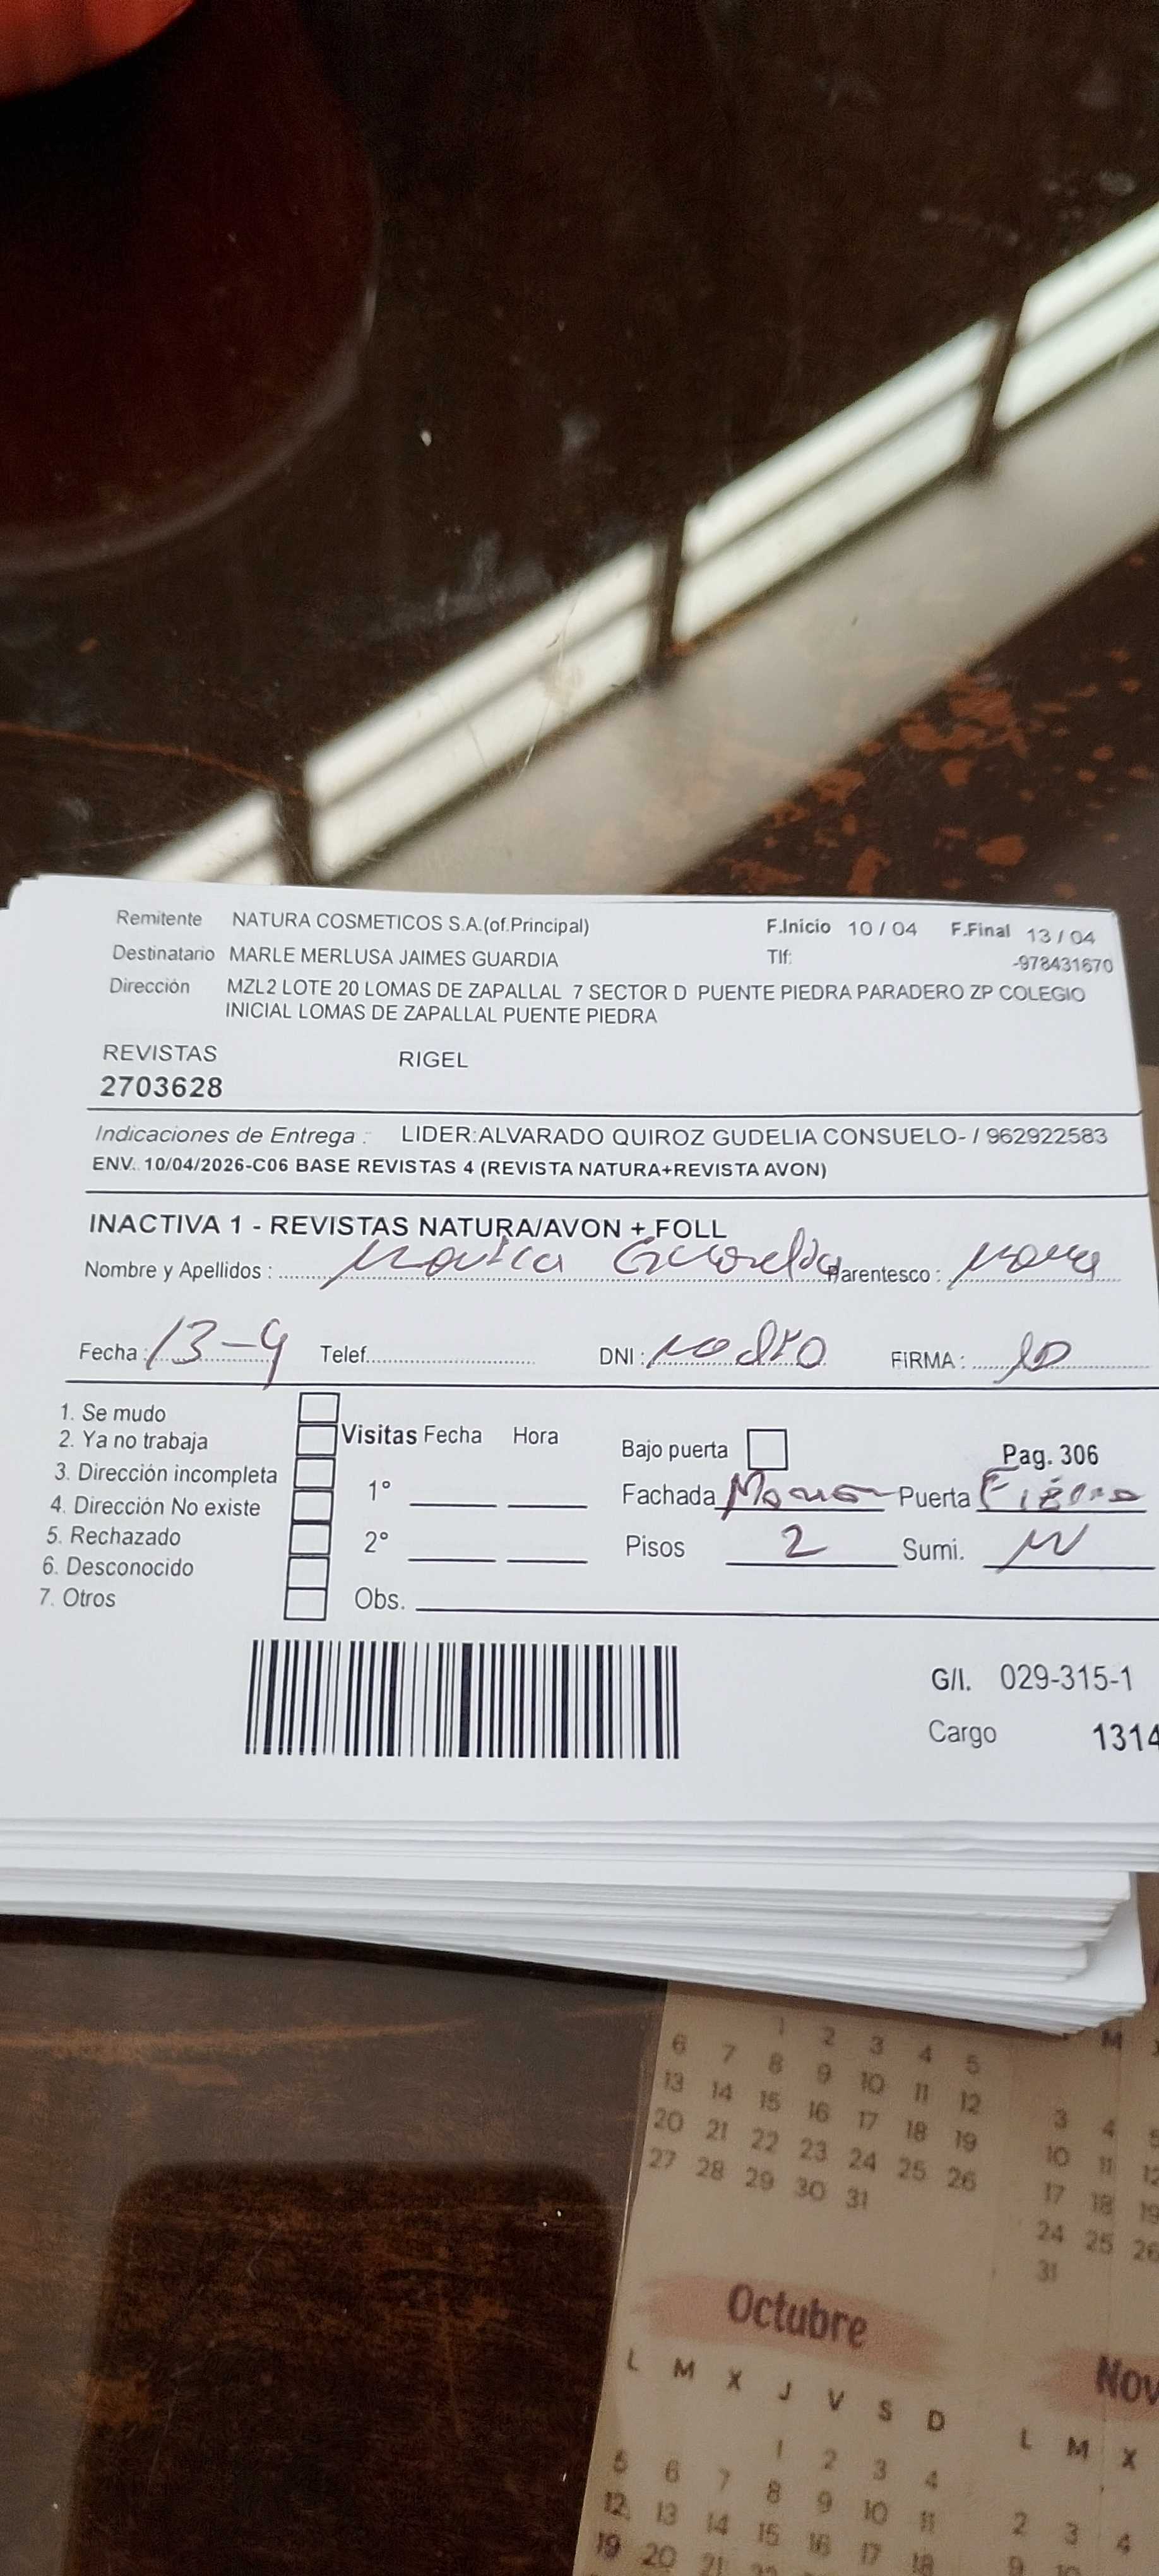 Remitente NATURA COSMETICOS S.A.(of.Principal) F.Inicio 10 / 04 F.Final 13 / 04
Destinatario MARLE MERLUSA JAIMES GUARDIA Tlf: -978431670
Dirección MZL2 LOTE 20 LOMAS DE ZAPALLAL 7 SECTOR D PUENTE PIEDRA PARADERO ZP COLEGIO
INICIAL LOMAS DE ZAPALLAL PUENTE PIEDRA
REVISTAS RIGEL
2703628
Indicaciones de Entrega : LIDER:ALVARADO QUIROZ GUDELIA CONSUELO- / 962922583
ENV. 10/04/2026-C06 BASE REVISTAS 4 (REVISTA NATURA+REVISTA AVON)
INACTIVA 1 - REVISTAS NATURA/AVON + FOLL
Nombre y Apellidos : Parentesco :
Fecha : 13-4 Telef. DNI : FIRMA :
1. Se mudo
2. Ya no trabaja Visitas Fecha Hora Bajo puerta Pag. 306
3. Dirección incompleta 1° Fachada Puerta
4. Dirección No existe
5. Rechazado 2° Pisos 2 Sumi.
6. Desconocido
7. Otros Obs.
G/I. 029-315-1
Cargo 1314
1 2 3 4 5
6 7 8 9 10 11 12
13 14 15 16 17 18 19
20 21 22 23 24 25 26
27 28 29 30 31
M
3 4 5
10 11 12
17 18 19
24 25 26
31
Octubre
L M X J V S D
1 2 3 4
5 6 7 8 9 10 11
12 13 14 15 16 17 18
19 20 21
Nov
L M X
2 3 4
9 10